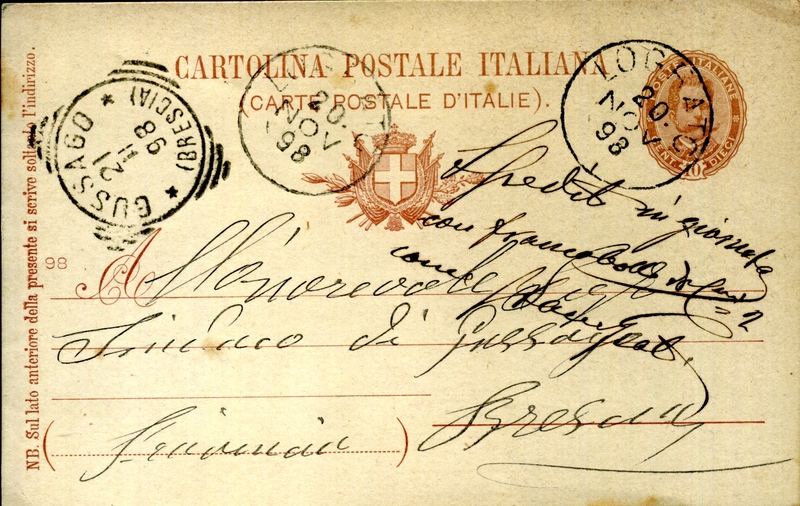 CARTOLINA POSTALE ITALIANA
(CARTE POSTALE D'ITALIE).
LOGRATO
20.
NOV
98
LOGRATO
20.
NOV
98
POSTE ITALIANE
CENT. 10 DIECI
GUSSAGO
(BRESCIA)
21
11
98
98
NB. Sul lato anteriore della presente si scrive soltanto l'indirizzo.
Spedita in giornata
con francobollo da cent
2
All'onorevole
Sindaco di
Brescia